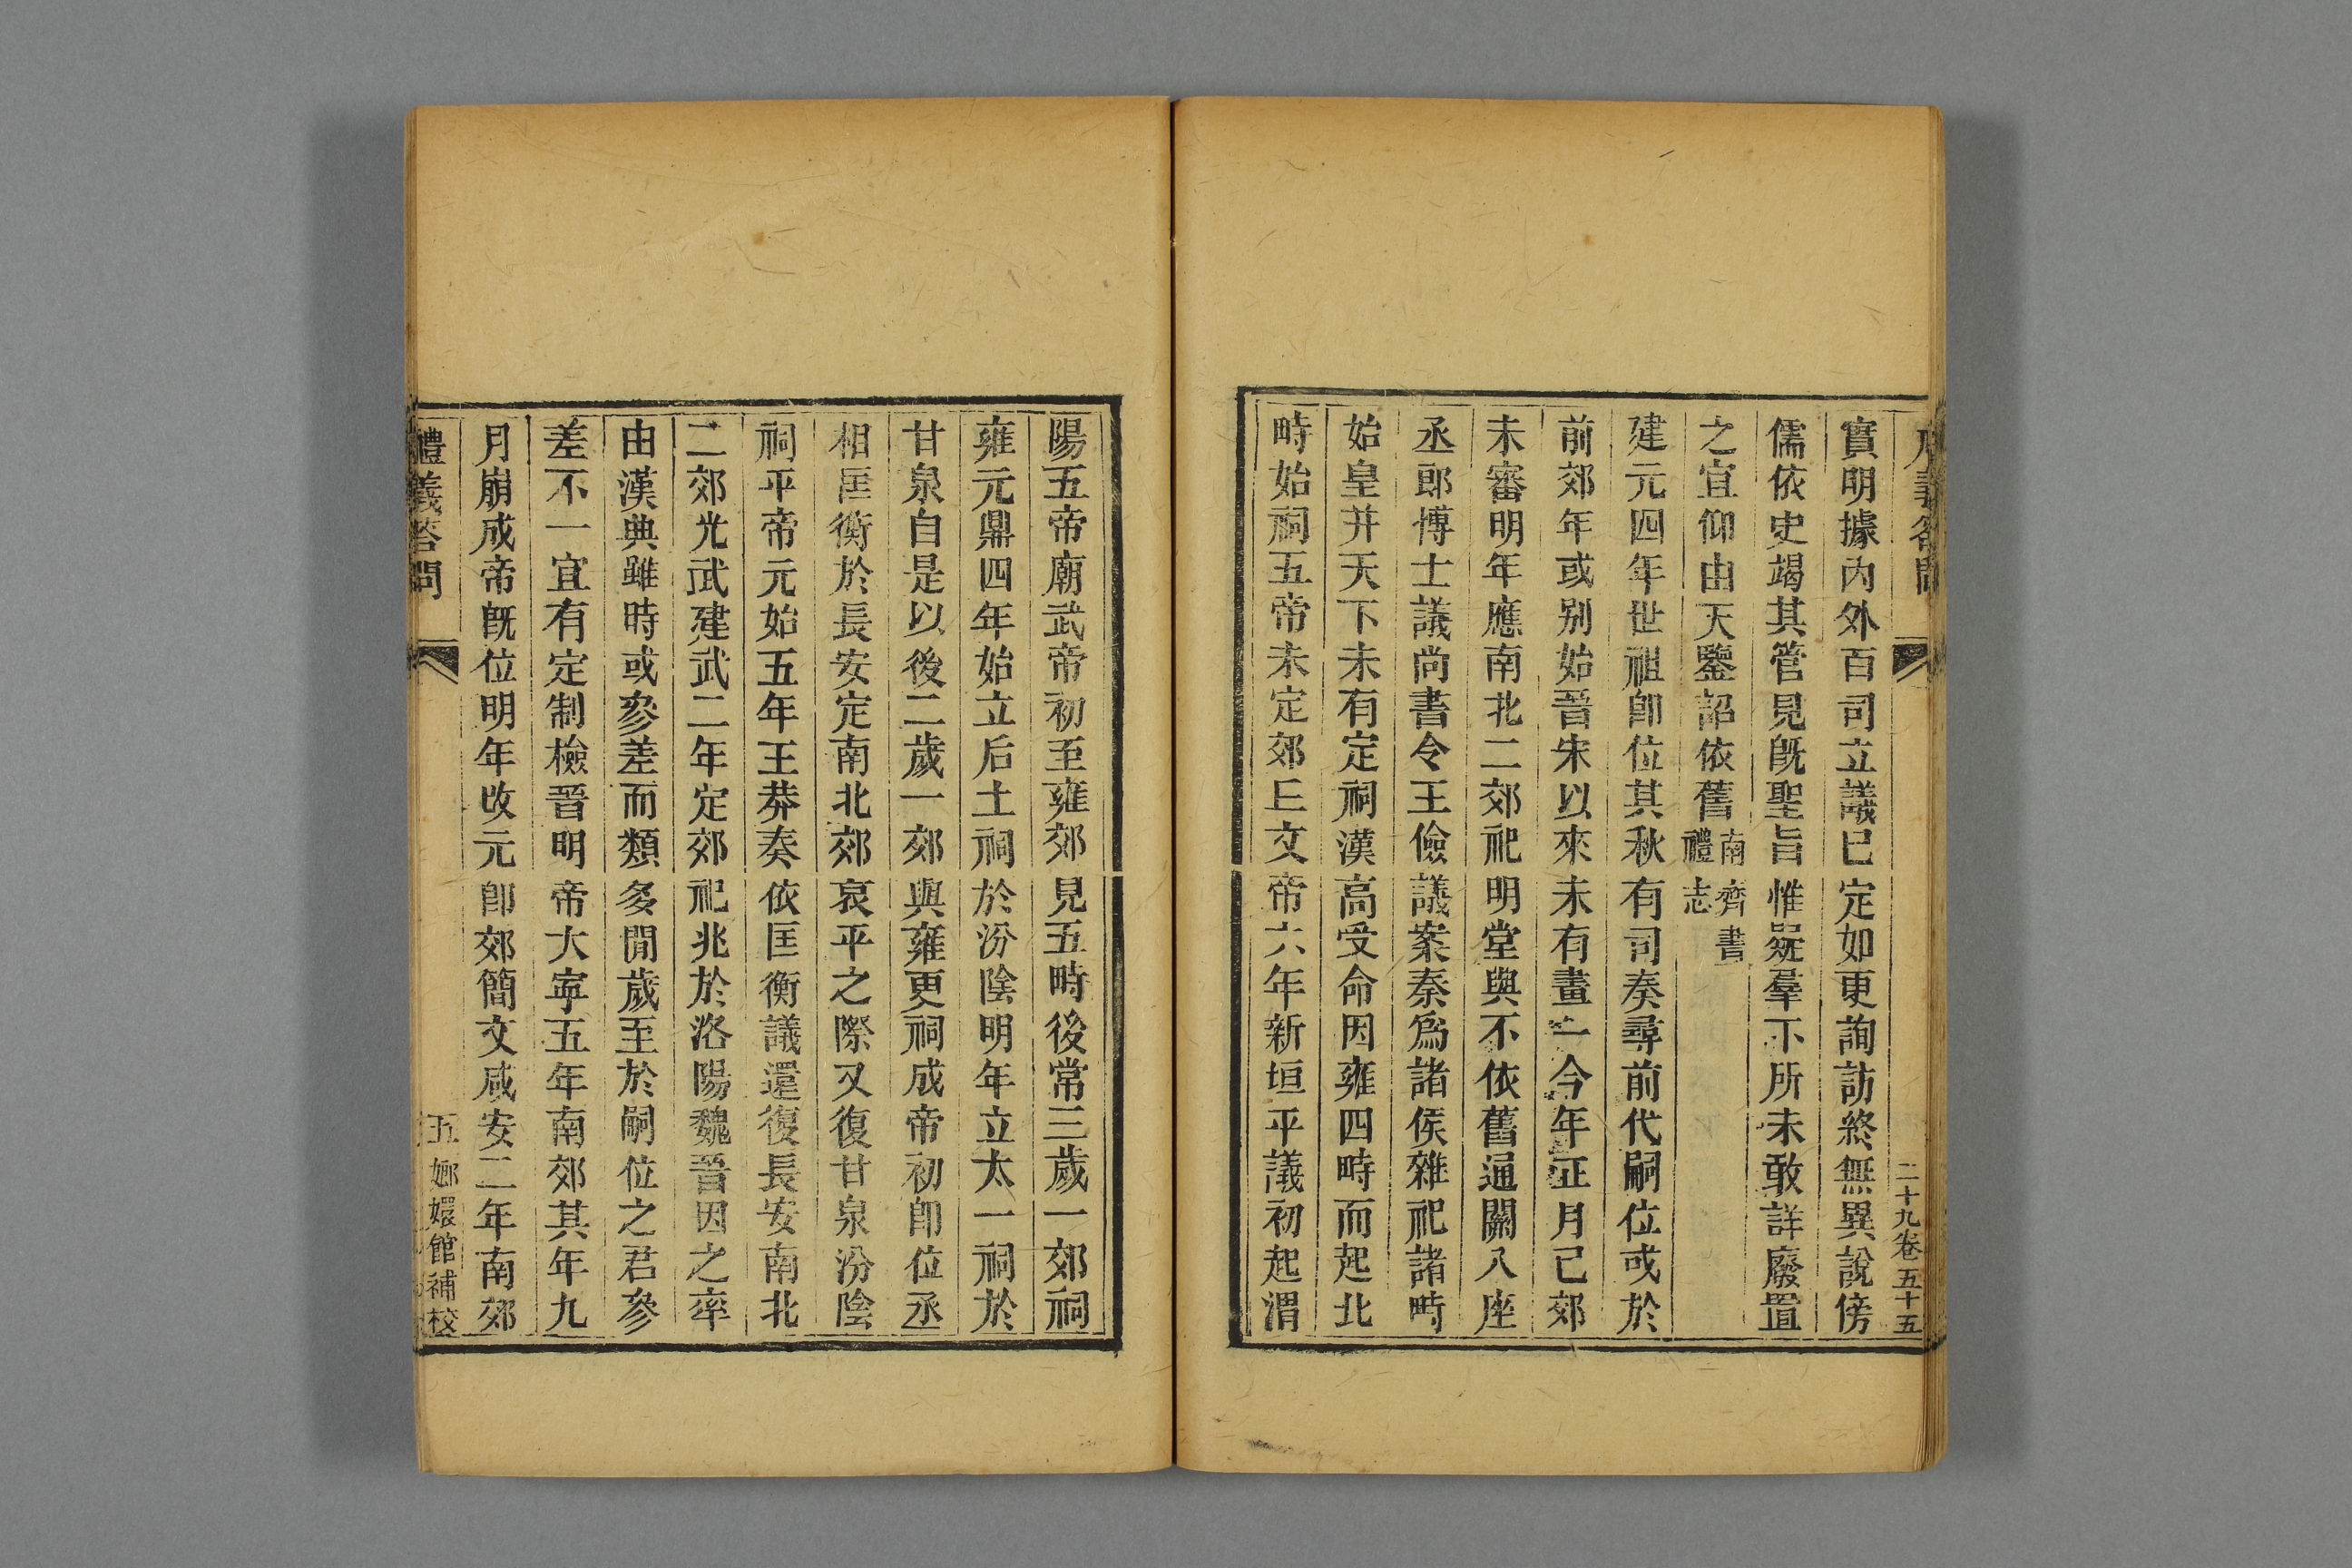 二十九卷五十五
實明據內外百司立議已定如更詢訪終無異說傍
儒依史竭其管見旣聖旨惟疑羣下所未敢詳廢置
之宜仰由天鑒詔依舊南齊書禮志
建元四年世祖卽位其秋有司奏尋前代嗣位或於
前郊年或别始晉宋以來未有畫一今年正月已郊
未審明年應南北二郊祀明堂與不依舊通關八座
丞郎博士議尚書令王儉議案秦爲諸侯雜祀諸畤
始皇并天下未有定祠漢高受命因雍四時而起北
時始祠五帝未定郊上文帝六年新垣平議初起渭
陽五帝廟武帝初至雍郊見五時後常三歲一郊祠
雍元鼎四年始立后土祠於汾陰明年立太一祠於
甘泉自是以後二歲一郊與雍更祠成帝初卽位丞
相匡衡於長安定南北郊哀平之際又復甘泉汾陰
祠平帝元始五年王莽奏依匡衡議還復長安南北
二郊光武建武二年定郊祀兆於洛陽魏晉因之率
由漢典雖時或參差而類多閒歲至於嗣位之君參
差不一宜有定制檢晉明帝大寧五年南郊其年九
月崩成帝旣位明年改元卽郊簡文咸安二年南郊
禮義荅問
五
嫏嬛館補校